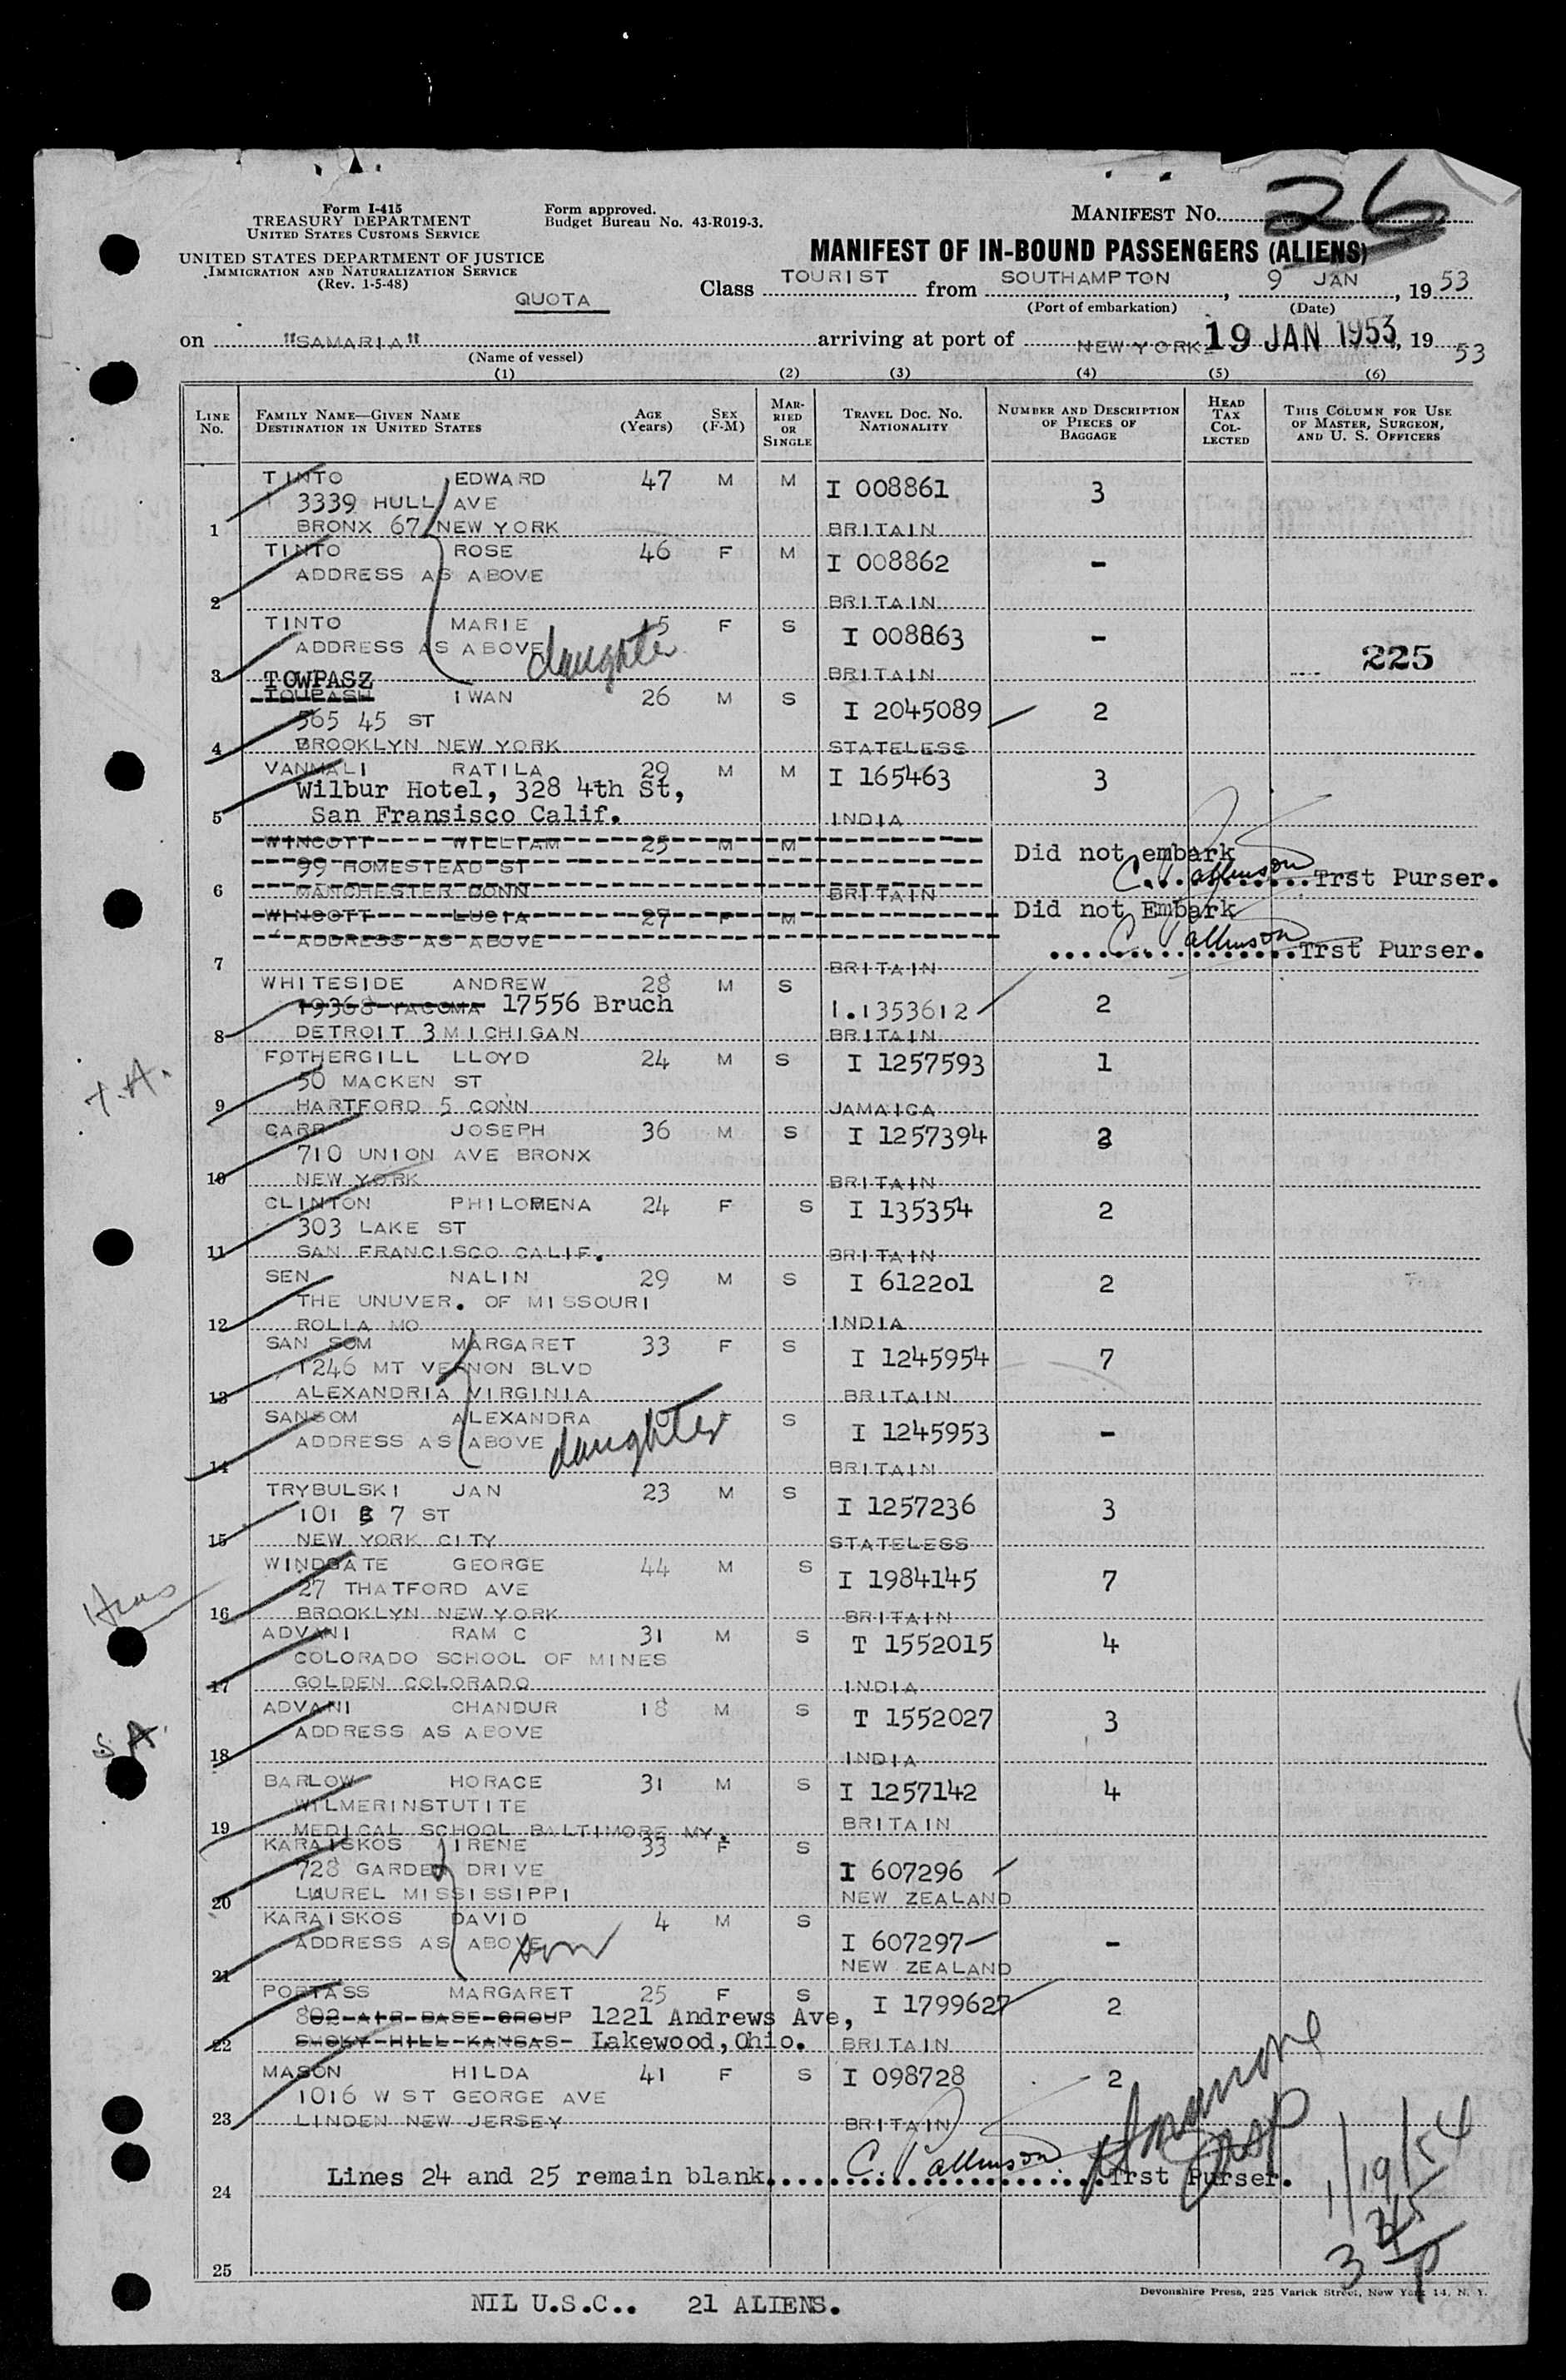 26
Form I-415
TREASURY DEPARTMENT
UNITED STATES CUSTOMS SERVICE
UNITED STATES DEPARTMENT OF JUSTICE
IMMIGRATION AND NATURALIZATION SERVICE
(Rev. 1-5-48)
Form approved.
Budget Bureau No. 43-R019-3.
MANIFEST NO.
MANIFEST OF IN-BOUND PASSENGERS (ALIENS)
QUOTA
Class TOURIST from SOUTHAMPTON, 9 JAN, 1953
(Port of embarkation) (Date)
on "SAMARIA" arriving at port of NEW YORK 19 JAN 1953, 19 53
(Name of vessel)
(1) (2) (3) (4) (5) (6)
LINE NO. FAMILY NAME—GIVEN NAME DESTINATION IN UNITED STATES AGE (YEARS) SEX (F-M) MARRIED OR SINGLE TRAVEL DOC. NO. NATIONALITY NUMBER AND DESCRIPTION OF PIECES OF BAGGAGE HEAD TAX COLLECTED THIS COLUMN FOR USE OF MASTER, SURGEON, AND U. S. OFFICERS
TINTO EDWARD 47 M M I 008861 3
3339 HULL AVE
1 BRONX 67 NEW YORK BRITAIN
TINTO ROSE 46 F M I 008862 -
ADDRESS AS ABOVE
2 BRITAIN
TINTO MARIE 15 F S I 008863 -
ADDRESS AS ABOVE daughter 225
3 BRITAIN
TOWPASZ
IWAN 26 M S I 2045089 2
565 45 ST
4 BROOKLYN NEW YORK STATELESS
VANMALI RATILA 29 M M I 165463 3
Wilbur Hotel, 328 4th St,
5 San Fransisco Calif. INDIA
WINCOTT WILLIAM 25 M M Did not embark
99 HOMESTEAD ST
6 MANCHESTER CONN BRITAIN C. Pallinson Irst Purser.
WINCOTT LUCIA 27 F M Did not Embark
ADDRESS AS ABOVE C. Pallinson Irst Purser.
7 BRITAIN
WHITESIDE ANDREW 28 M S I.1353612 2
19368 YACOMA 17556 Bruch
8 DETROIT 3 MICHIGAN BRITAIN
FOTHERGILL LLOYD 24 M S I 1257593 1
T.A. 50 MACKEN ST
9 HARTFORD 5 CONN JAMAICA
CARR JOSEPH 36 M S I 1257394
710 UNION AVE BRONX
10 NEW YORK BRITAIN
CLINTON PHILOMENA 24 F S I 135354 2
303 LAKE ST
11 SAN FRANCISCO CALIF. BRITAIN
SEN NALIN 29 M S I 612201 2
THE UNUVER. OF MISSOURI
12 ROLLA MO INDIA
SAN SOM MARGARET 33 F S I 1245954 7
1246 MT VERNON BLVD
13 ALEXANDRIA VIRGINIA BRITAIN
SANSOM ALEXANDRA F S I 1245953 -
ADDRESS AS ABOVE daughter
14 BRITAIN
TRYBULSKI JAN 23 M S I 1257236 3
101 E 7 ST
15 NEW YORK CITY STATELESS
WINDGATE GEORGE 44 M S I 1984145 7
27 THATFORD AVE
16 BROOKLYN NEW YORK BRITAIN
ADVANI RAM C 31 M S T 1552015 4
COLORADO SCHOOL OF MINES
17 GOLDEN COLORADO INDIA
ADVANI CHANDUR 18 M S T 1552027 3
S A. ADDRESS AS ABOVE
18 INDIA
BARLOW HORACE 31 M S I 1257142 4
WILMERINSTUTITE
19 MEDICAL SCHOOL BALTIMORE MY. BRITAIN
KARAISKOS IRENE 33 F S I 607296
728 GARDEN DRIVE
20 LAUREL MISSISSIPPI NEW ZEALAND
KARAISKOS DAVID 4 M S I 607297 -
ADDRESS AS ABOVE son
21 NEW ZEALAND
PORTASS MARGARET 25 F S I 1799627 2
802 AIR BASE GROUP 1221 Andrews Ave,
22 SMOKY HILL KANSAS Lakewood, Ohio. BRITAIN
MASON HILDA 41 F S I 098728 2
1016 W ST GEORGE AVE
23 LINDEN NEW JERSEY BRITAIN
Lines 24 and 25 remain blank C. Pallinson Irst Purser.
24
1/19/54
25
NIL U.S.C.. 21 ALIENS.
Devonshire Press, 225 Varick Street, New York 14, N. Y.